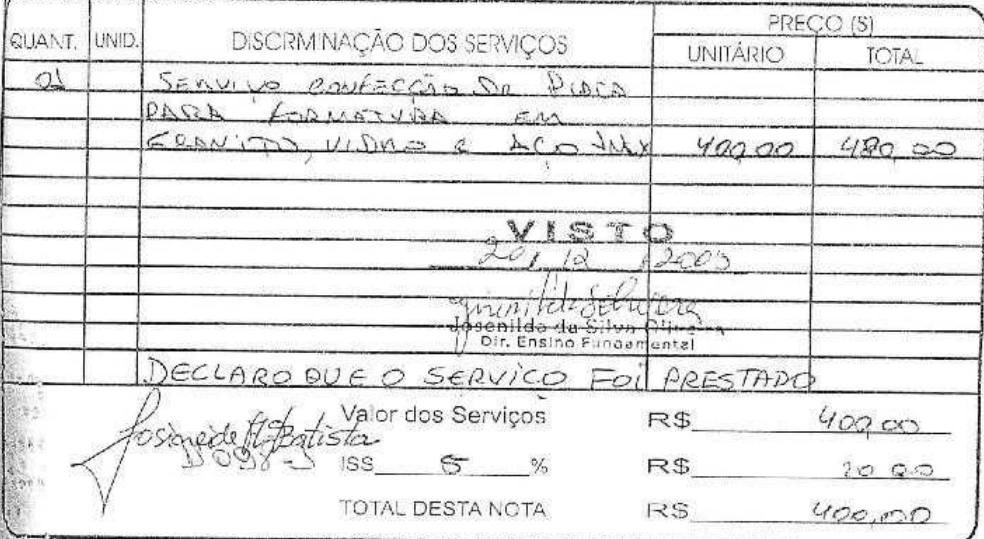 PREÇO (S)
QUANT. UNID. DISCRMINAÇÃO DOS SERVIÇOS UNITÁRIO TOTAL
01 SERVIÇO CONFECÇÃO DE PLACA
PARA FORMATURA EM
GRANITO, VIDRO E AÇO INOX 400,00 480,00
VISTO
20/12/2005
Josenilda da Silva Oliveira
Dir. Ensino Fundamental
DECLARO QUE O SERVIÇO FOI PRESTADO
Valor dos Serviços R$ 400,00
Batista
ISS 5 % R$ 20,00
TOTAL DESTA NOTA R$ 400,00